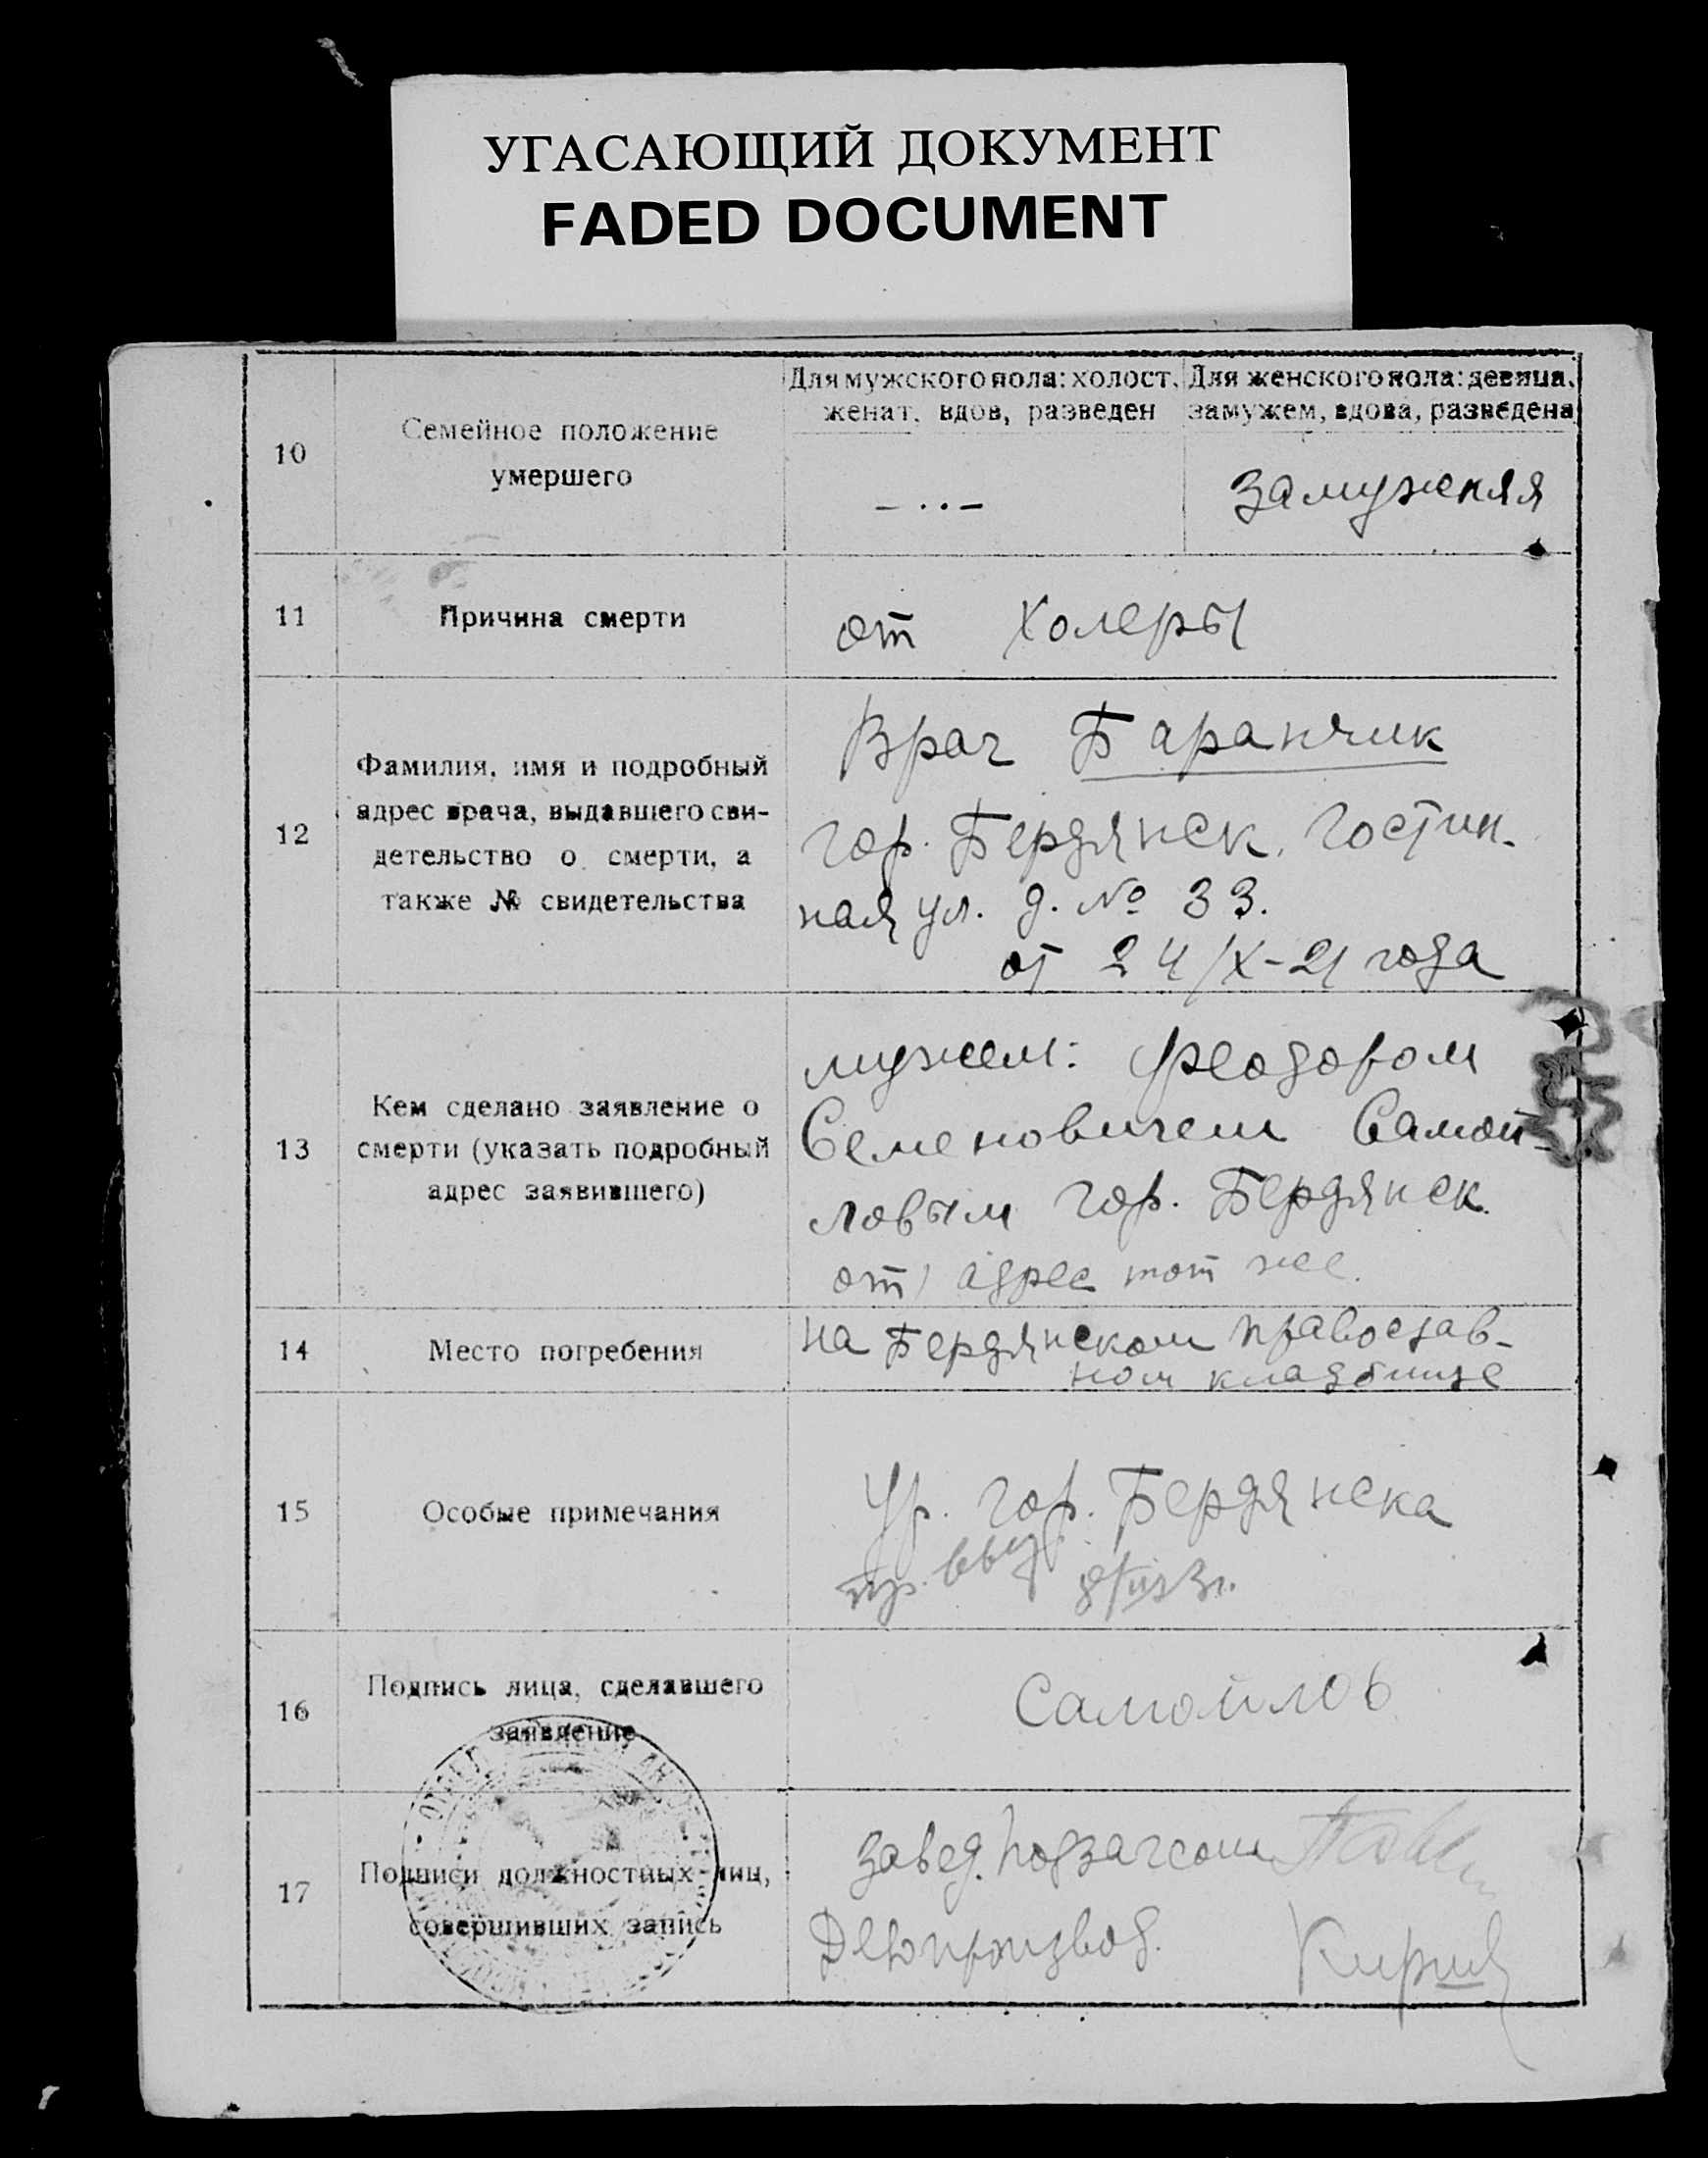 УГАСАЮЩИЙ ДОКУМЕНТ
FADED DOCUMENT
10
Семейное положение
умершего
Для мужского пола: холост,
женат, вдов, разведен
Для женского пола: девица,
замужем, вдова, разведена
замужняя
11
Причина смерти
от Холеры
12
Фамилия, имя и подробный
адрес врача, выдавшего сви-
детельство о смерти, а
также № свидетельства
Врач Баранчик
гор. Бердянск. Гостин-
ная ул. д. № 33.
от 24/X-21 года
13
Кем сделано заявление о
смерти (указать подробный
адрес заявившего)
мужем: Феодором
Семеновичем Самой-
ловым гор. Бердянск.
адрес тот же.
14
Место погребения
на Бердянском православ-
ном кладбище
15
Особые примечания
Ур. гор. Бердянска
16
Подпись лица, сделавшего
заявление
Самойлов
17
Подписи должностных лиц,
совершивших запись
Завед. подзагсом
Делопроизвод.